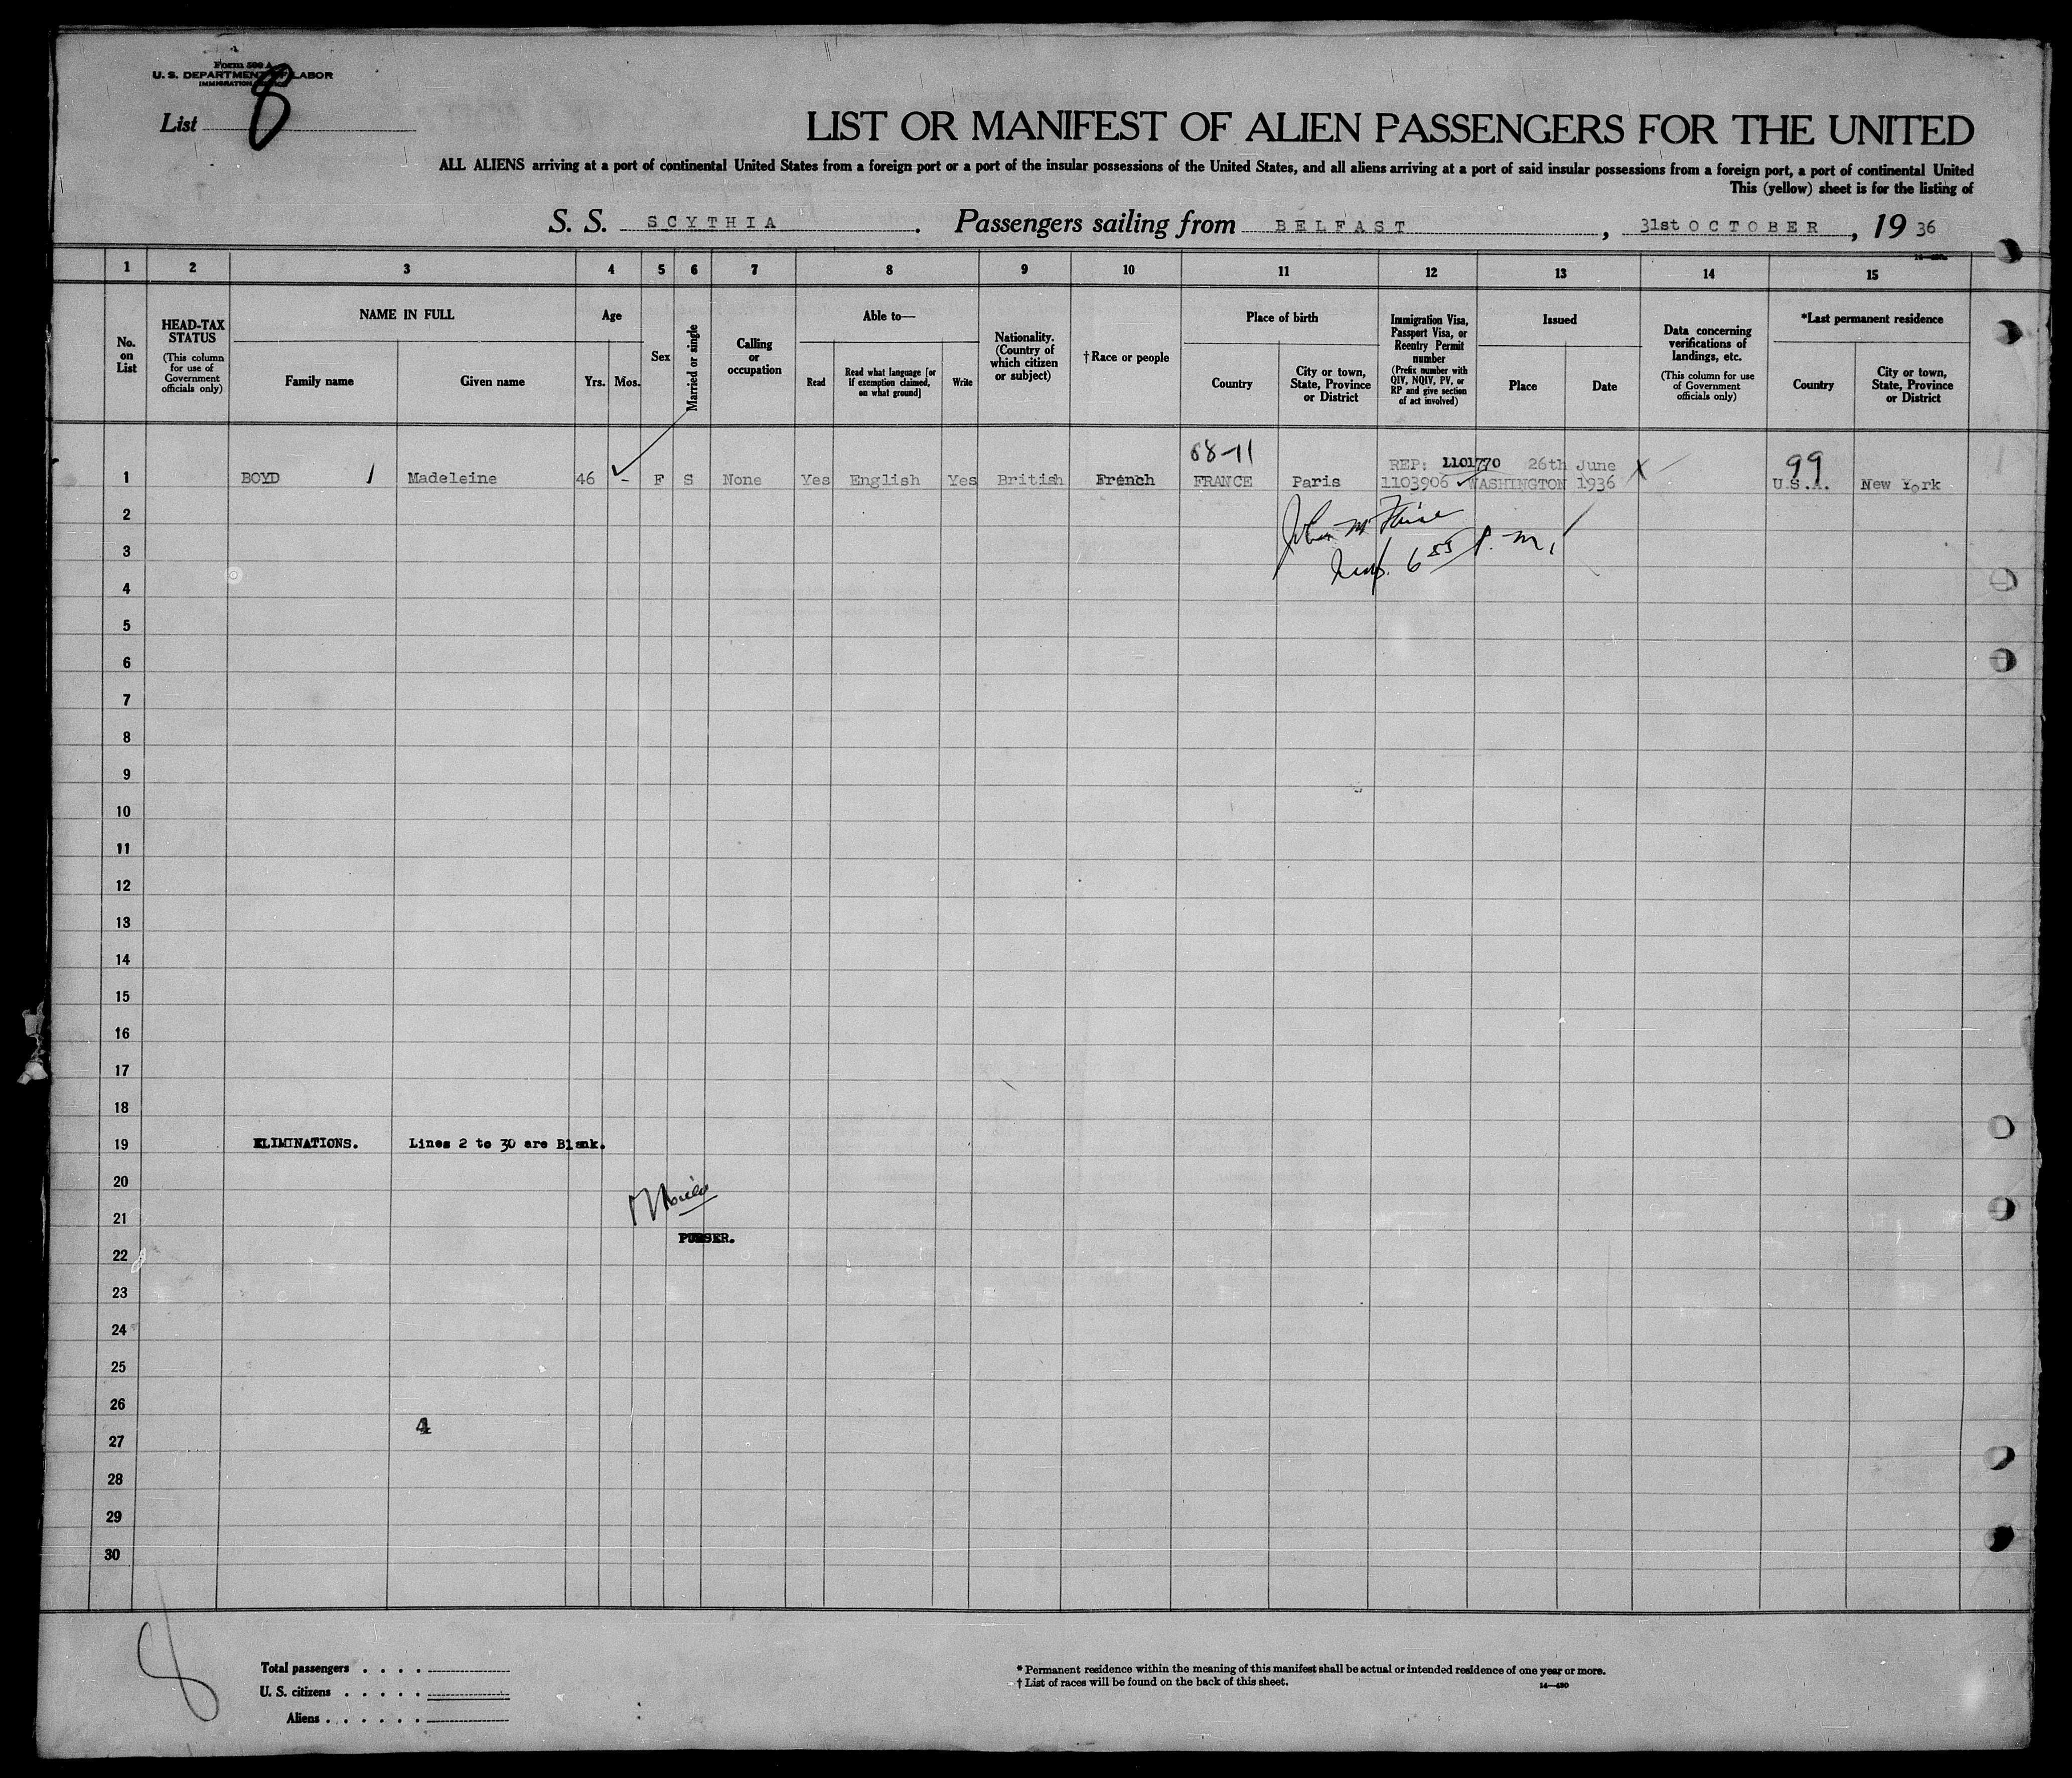 Form 500 A
U. S. DEPARTMENT OF LABOR
IMMIGRATION
List 8
LIST OR MANIFEST OF ALIEN PASSENGERS FOR THE UNITED
ALL ALIENS arriving at a port of continental United States from a foreign port or a port of the insular possessions of the United States, and all aliens arriving at a port of said insular possessions from a foreign port, a port of continental United
This (yellow) sheet is for the listing of
S. S. SCYTHIA. Passengers sailing from BELFAST, 31st OCTOBER, 19 36
1 2 3 4 5 6 7 8 9 10 11 12 13 14 15
No. on List
HEAD-TAX STATUS
(This column for use of Government officials only)
NAME IN FULL
Family name
Given name
Age
Yrs. Mos.
Sex
Married or single
Calling or occupation
Able to—
Read
Read what language [or if exemption claimed, on what ground]
Write
Nationality. (Country of which citizen or subject)
†Race or people
Place of birth
Country
City or town, State, Province or District
Immigration Visa, Passport Visa, or Reentry Permit number
(Prefix number with QIV, NQIV, PV, or RP and give section of act involved)
Issued
Place
Date
Data concerning verifications of landings, etc.
(This column for use of Government officials only)
*Last permanent residence
Country
City or town, State, Province or District
68-11
REP: 1101770 26th June X
99
1 BOYD 1 Madeleine 46 - F S None Yes English Yes British French FRANCE Paris 1103906 WASHINGTON 1936 U.S.A. New York
2
John
3
6 55 P. M.
4
5
6
7
8
9
10
11
12
13
14
15
16
17
18
19 ELIMINATIONS. Lines 2 to 30 are Blank.
20
21
PURSER.
22
23
24
25
26
4
27
28
29
30
8
Total passengers . . . .
U. S. citizens . . . . .
Aliens . . . . . .
* Permanent residence within the meaning of this manifest shall be actual or intended residence of one year or more.
† List of races will be found on the back of this sheet.
14—480